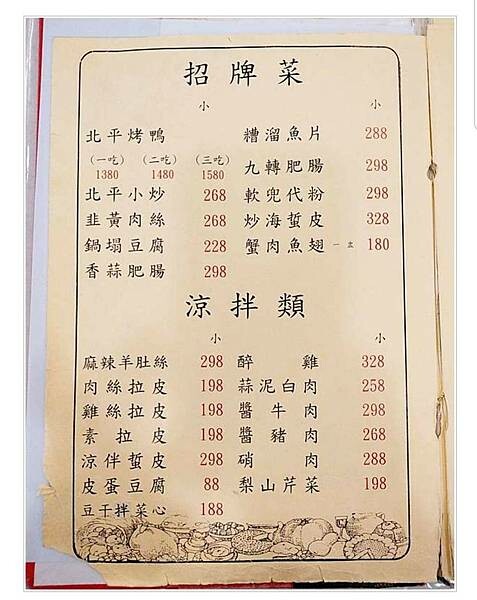 招牌菜
小 小
北平烤鴨 糟溜魚片 288
(一吃) (二吃) (三吃)
1380 1480 1580 九轉肥腸 298
北平小炒 268 軟兜代粉 298
韭黃肉絲 268 炒海蜇皮 328
鍋塌豆腐 228 蟹肉魚翅 一盅 180
香蒜肥腸 298
涼拌類
小 小
麻辣羊肚絲 298 醉雞 328
肉絲拉皮 198 蒜泥白肉 258
雞絲拉皮 198 醬牛肉 298
素拉皮 198 醬豬肉 268
涼伴蜇皮 298 硝肉 288
皮蛋豆腐 88 梨山芹菜 198
豆干拌菜心 188